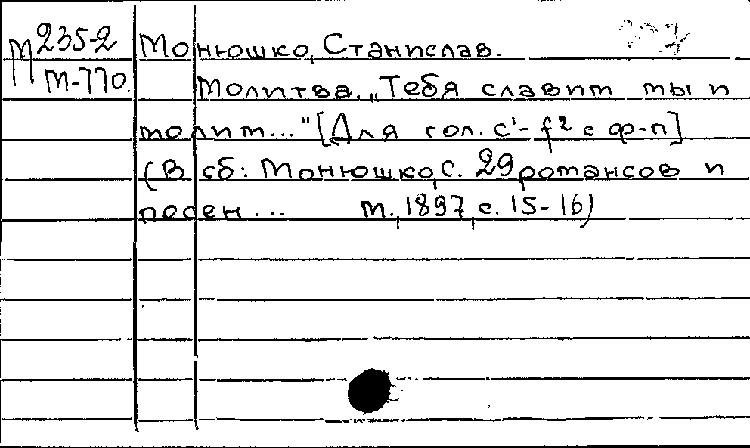 М 235-2
М-770.
Монюшко, Станислав.
Молитва. „Тебя славит мы и
молит..." [Для гол. c¹- f² с ф-п]
(В сб: Монюшко, С. 29 романсов и
песен... М., 1897, с. 15-16)